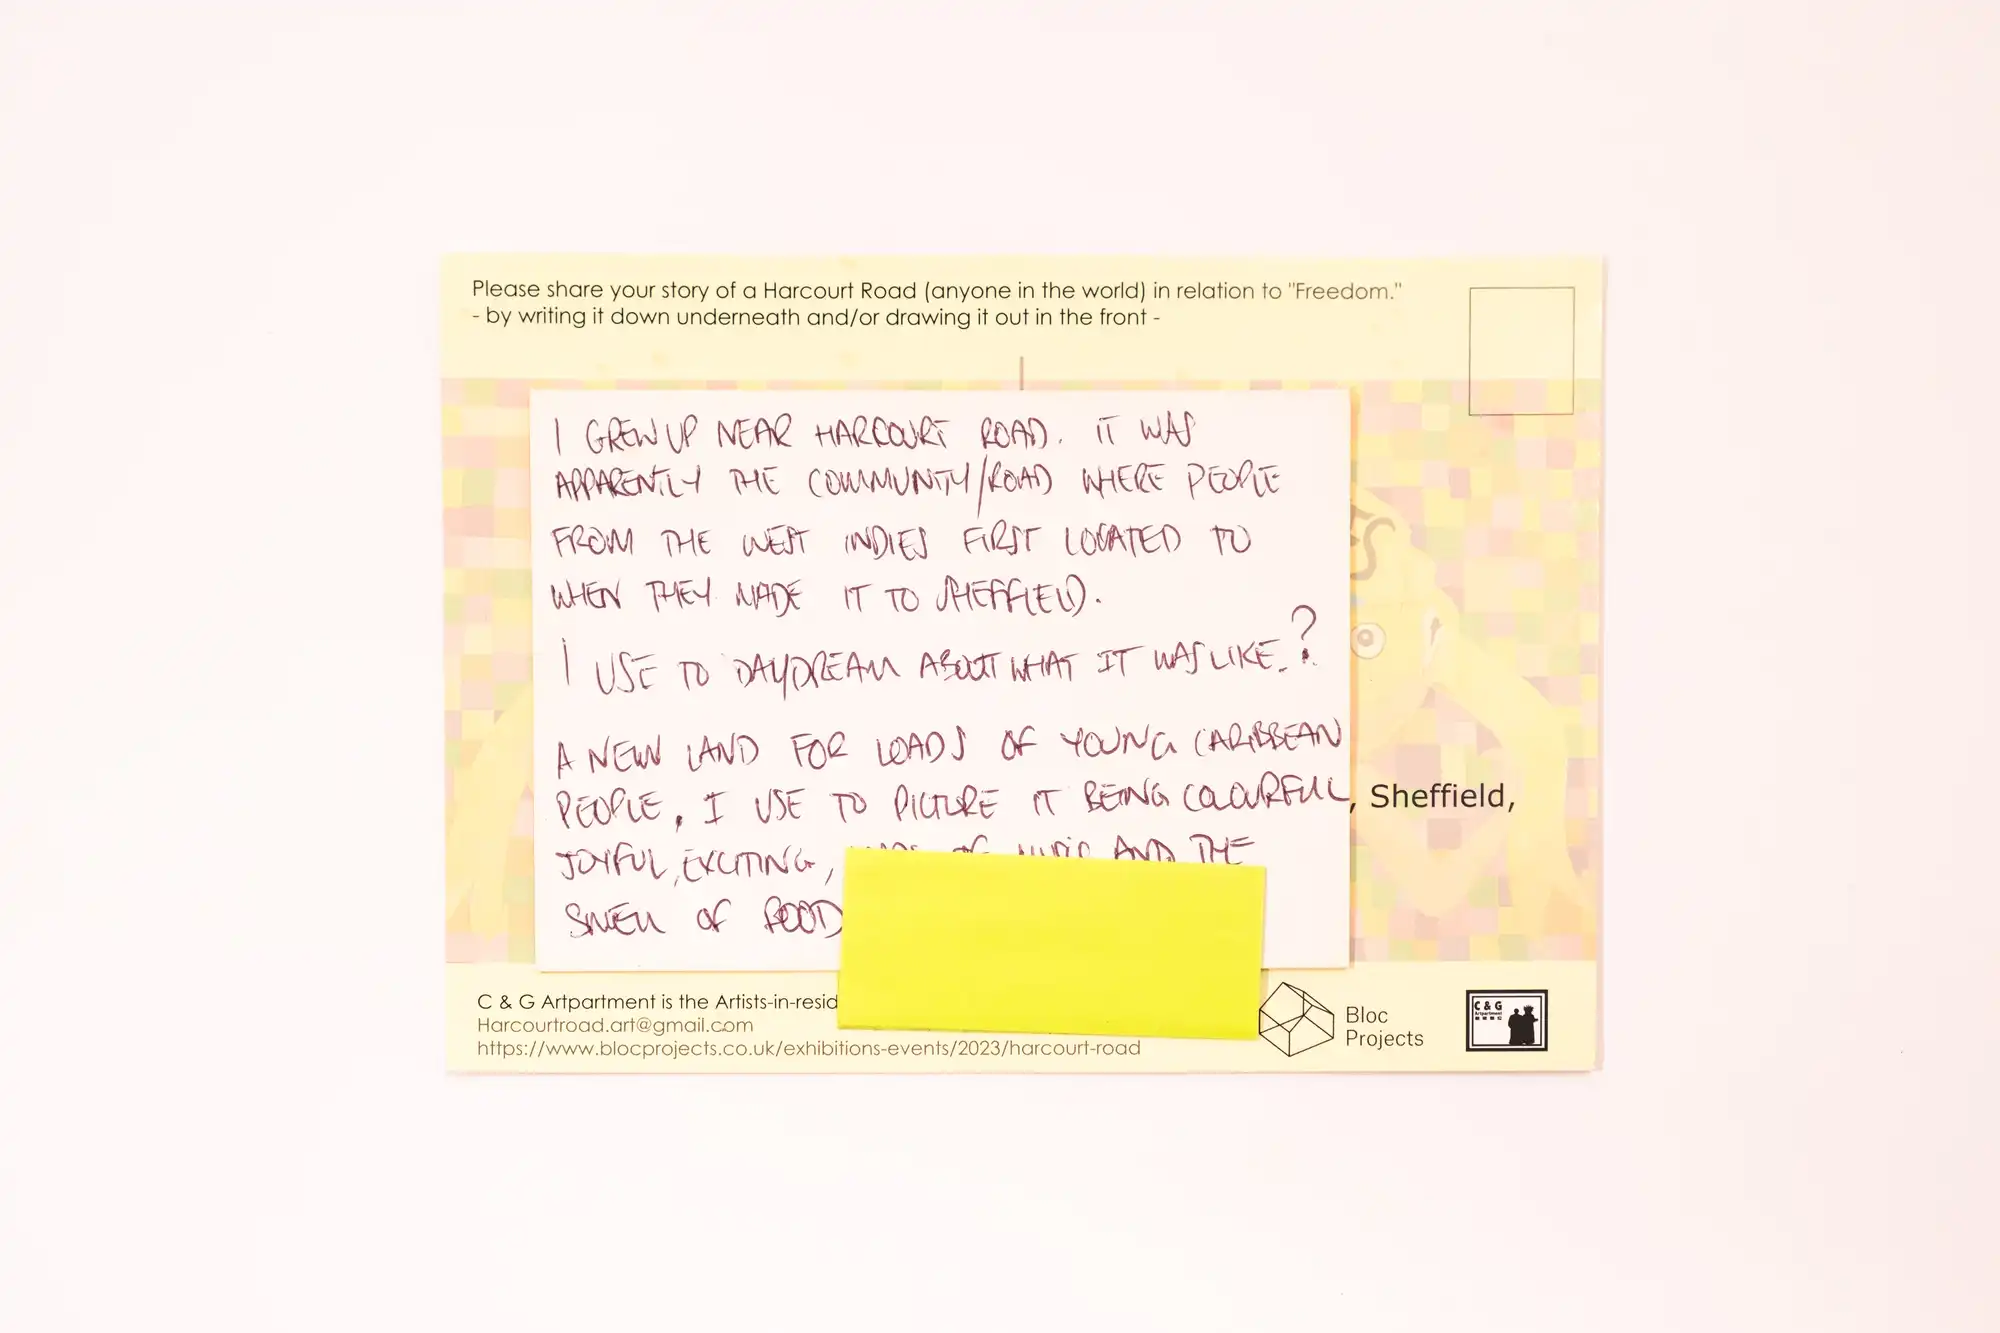 Please share your story of a Harcourt Road (anyone in the world) in relation to "Freedom."
- by writing it down underneath and/or drawing it out in the front -
I GREW UP NEAR HARCOURT ROAD. IT WAS
APPARENTLY THE COMMUNITY/ROAD WHERE PEOPLE
FROM THE WEST INDIES FIRST LOCATED TO
WHEN THEY MADE IT TO SHEFFIELD.
I USE TO DAYDREAM ABOUT WHAT IT WAS LIKE.?
A NEW LAND FOR LOADS OF YOUNG CARIBBEAN
PEOPLE, I USE TO PICTURE IT BEING COLOURFUL
JOYFUL, EXCITING, OF MUSIC AND THE
SMELL OF FOOD
, Sheffield,
C & G Artpartment is the Artists-in-resid
Harcourtroad.art@gmail.com
https://www.blocprojects.co.uk/exhibitions-events/2023/harcourt-road
Bloc
Projects
C & G
Artpartment